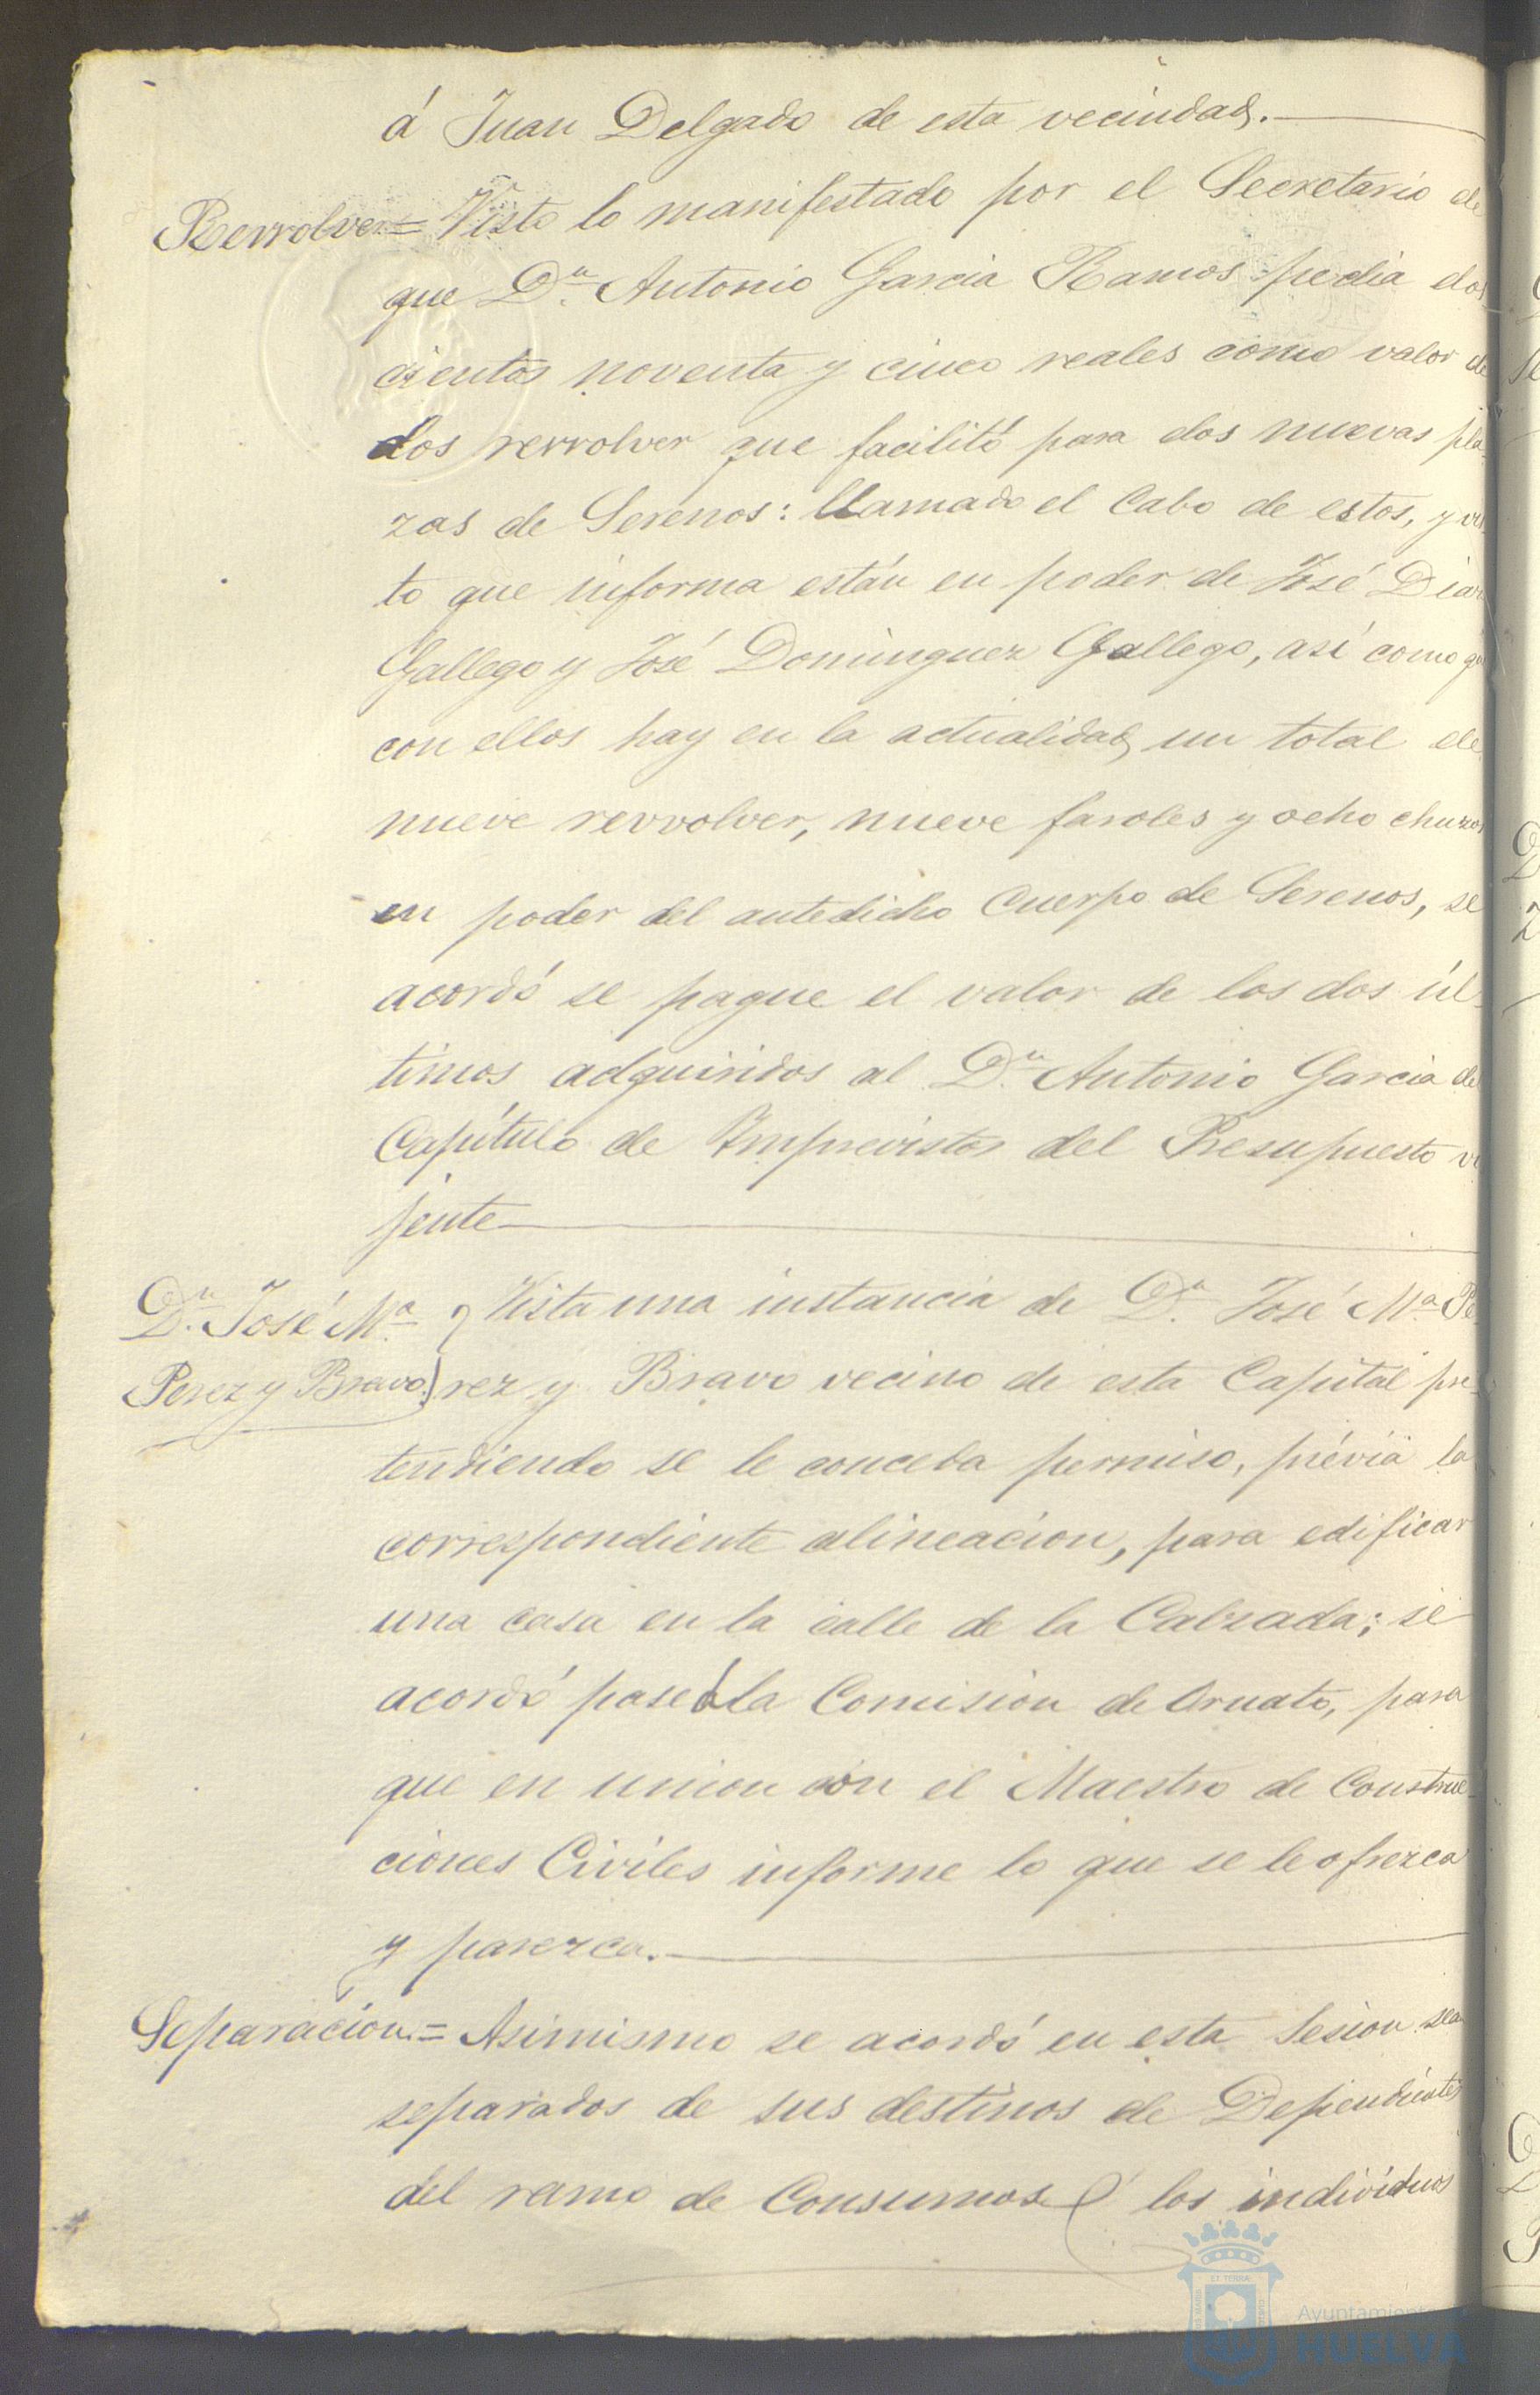 á Juan Delgado de esta vecindad.
Revvolver = Visto lo manifestado por el Secretario de
que Dn. Antonio Garcia Ramos pedia dos
cientos noventa y cinco reales como valor de
dos revvolver que facilitó para dos nuevas pla
zas de Serenos: llamado el Cabo de estos, y vis
to que informa están en poder de José Diaz
Gallego y José Dominguez Gallego, así como qe
con ellos hay en la actualidad un total de
nueve revvolver, nueve faroles y ocho chuzos
en poder del antedicho Cuerpo de Serenos, se
acordó se pague el valor de los dos úl-
timos adquiridos al Dn. Antonio Garcia del
Capítulo de Imprevistos del Presupuesto vi
jente
Dn. José Ma. Vista una instancia de Dn. José Ma. Pe
Perez y Bravo) rez y Bravo vecino de esta Capital pre-
tendiendo se le conceda permiso, prévia la
correspondiente alineacion, para edificar
una casa en la calle de la Calzada; se
acordó pase á la Comision de Ornato, para
que en union con el Maestro de Construc-
ciones Civiles informe lo que se le ofrezca
y parezca.
Separacion = Asimismo se acordó en esta Sesion sean
separados de sus destinos de Dependientes
del ramo de Consumos á los individuos
Ayuntamiento
HUELVA